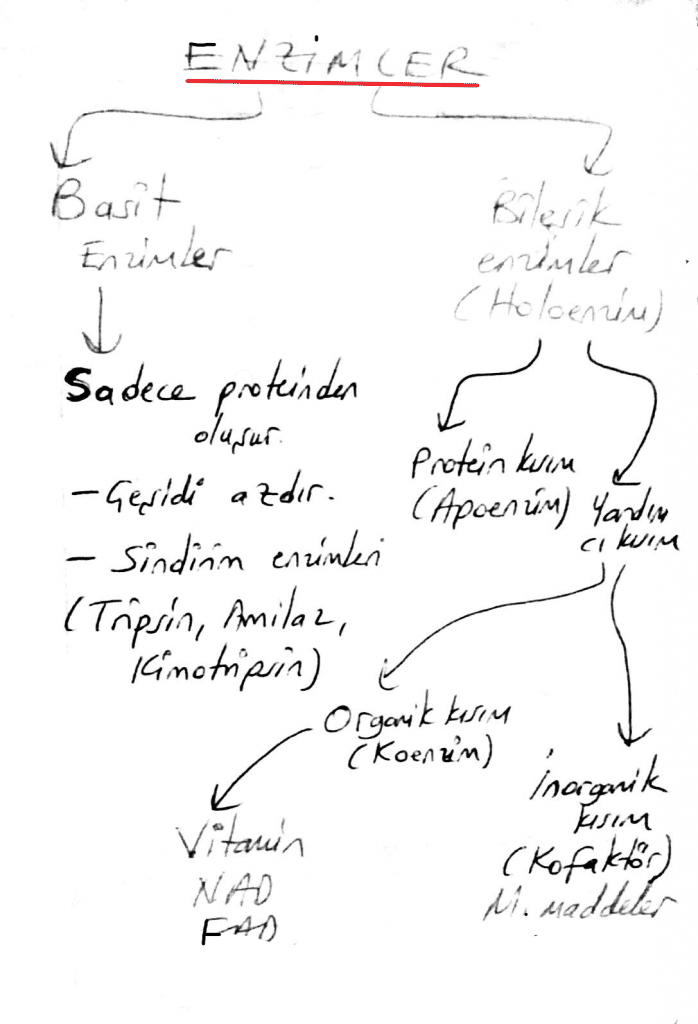 ENZİMLER
Basit
Enzimler
Sadece proteinden
oluşur.
- Çeşidi azdır.
- Sindirim enzimleri
(Tripsin, Amilaz,
Kimotripsin)
Bileşik
enzimler
(Holoenzim)
Protein kısım
(Apoenzim)
Yardım
cı kısım
Organik kısım
(Koenzim)
Vitamin
NAD
FAD
İnorganik
kısım
(Kofaktör)
M. maddeler